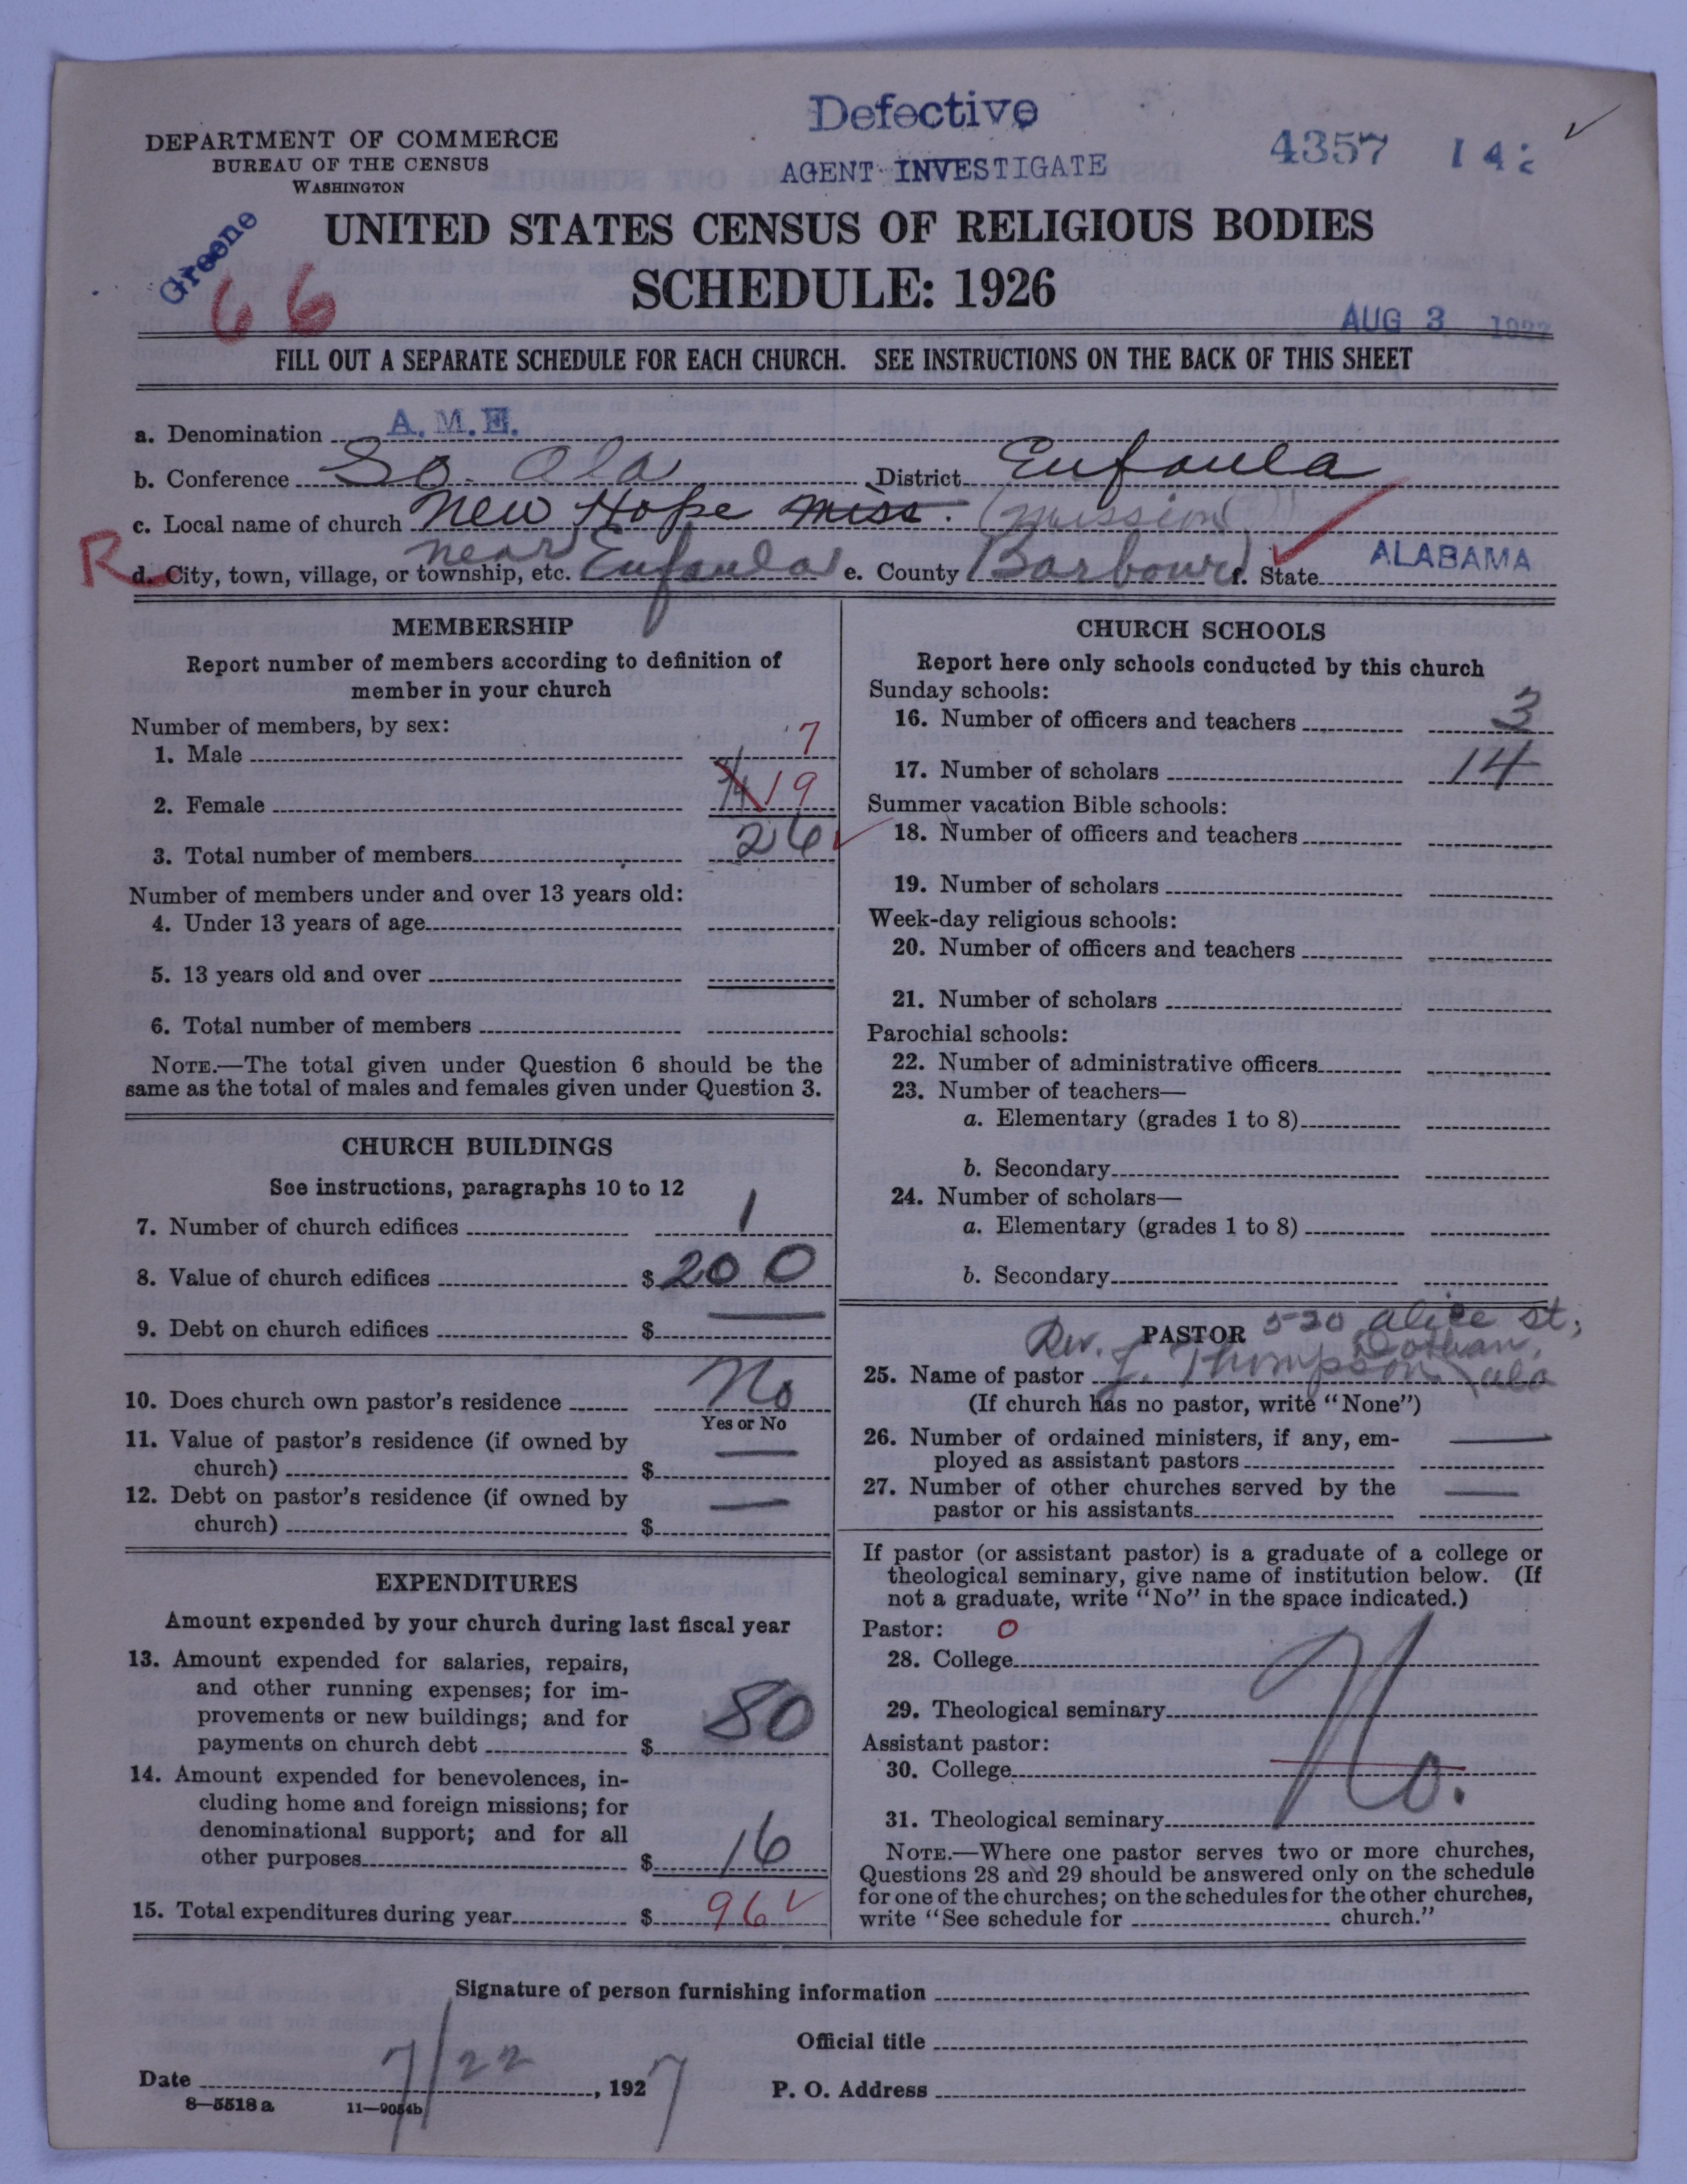 Defective
DEPARTMENT OF COMMERCE
BUREAU OF THE CENSUS
WASHINGTON
AGENT INVESTIGATE
4357
Greene
66
UNITED STATES CENSUS OF RELIGIOUS BODIES
SCHEDULE: 1926
AUG 3
FILL OUT A SEPARATE SCHEDULE FOR EACH CHURCH. SEE INSTRUCTIONS ON THE BACK OF THIS SHEET
a. Denomination A.M.E.
b. Conference So. Ala District Eufaula
c. Local name of church New Hope Miss. (Mission)
R
d. City, town, village, or township, etc. near Eufaula e. County Barbour f. State ALABAMA
MEMBERSHIP
Report number of members according to definition of
member in your church
Number of members, by sex:
1. Male 7
2. Female 19
3. Total number of members 26
Number of members under and over 13 years old:
4. Under 13 years of age
5. 13 years old and over
6. Total number of members
NOTE.—The total given under Question 6 should be the
same as the total of males and females given under Question 3.
CHURCH BUILDINGS
See instructions, paragraphs 10 to 12
7. Number of church edifices 1
8. Value of church edifices $ 200
9. Debt on church edifices $ —
10. Does church own pastor's residence No
Yes or No
11. Value of pastor's residence (if owned by
church) $ —
12. Debt on pastor's residence (if owned by
church) $ —
EXPENDITURES
Amount expended by your church during last fiscal year
13. Amount expended for salaries, repairs,
and other running expenses; for im-
provements or new buildings; and for
payments on church debt $ 80
14. Amount expended for benevolences, in-
cluding home and foreign missions; for
denominational support; and for all
other purposes $ 16
15. Total expenditures during year $ 96
CHURCH SCHOOLS
Report here only schools conducted by this church
Sunday schools:
16. Number of officers and teachers 3
17. Number of scholars 14
Summer vacation Bible schools:
18. Number of officers and teachers
19. Number of scholars
Week-day religious schools:
20. Number of officers and teachers
21. Number of scholars
Parochial schools:
22. Number of administrative officers
23. Number of teachers—
a. Elementary (grades 1 to 8)
b. Secondary
24. Number of scholars—
a. Elementary (grades 1 to 8)
b. Secondary
PASTOR 520 Alice St,
Dothan,
25. Name of pastor Rev. J. Thompson Ala
(If church has no pastor, write "None")
26. Number of ordained ministers, if any, em-
ployed as assistant pastors —
27. Number of other churches served by the
pastor or his assistants —
If pastor (or assistant pastor) is a graduate of a college or
theological seminary, give name of institution below. (If
not a graduate, write "No" in the space indicated.)
Pastor: 0
28. College
29. Theological seminary
No.
Assistant pastor:
30. College
31. Theological seminary
NOTE.—Where one pastor serves two or more churches,
Questions 28 and 29 should be answered only on the schedule
for one of the churches; on the schedules for the other churches,
write "See schedule for church."
Signature of person furnishing information
Official title
Date 7/22, 1927 P. O. Address
8—5518a 11—9054b